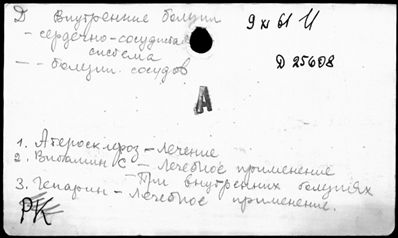 D Внутренние болезни
9 XI 61 И
- сердечно-сосудистая
система
D 25608
- - болезни сосудов
A
1. Атеросклероз - лечение
2. Витамин С - Лечебное применение
при внутренних болезнях
3. Гепарин - Лечебное применение.
РЖ